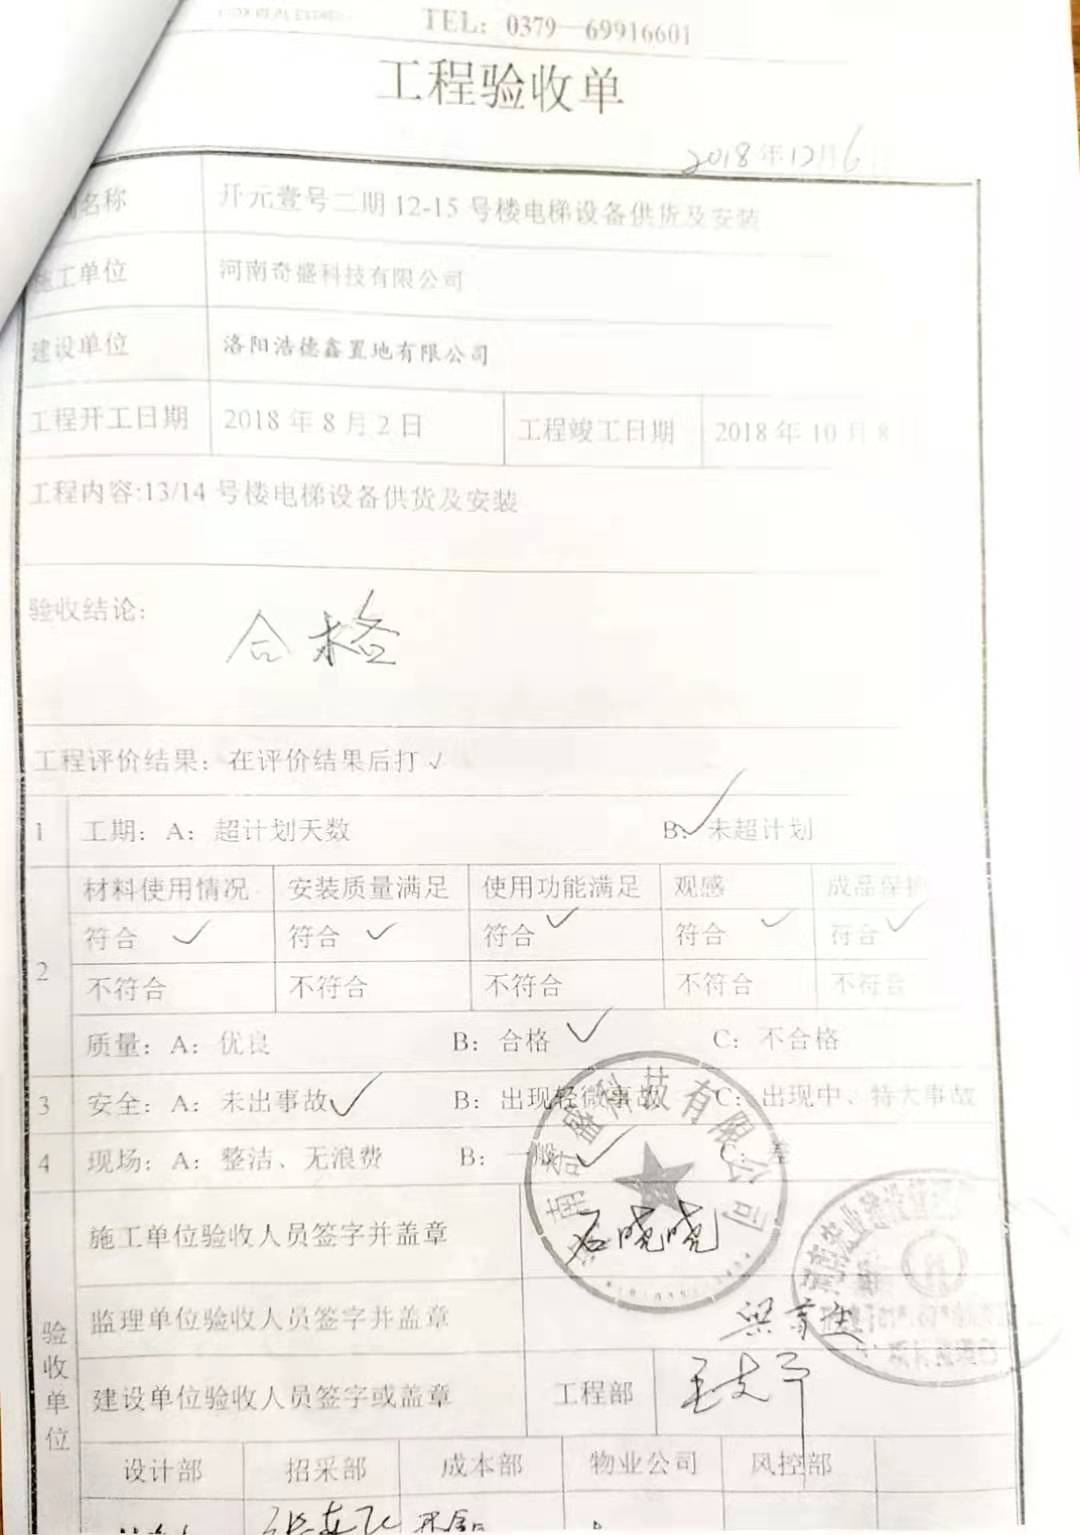 TEL：0379—69916601
工程验收单
2018年12月6
名称 开元壹号二期12-15号楼电梯设备供货及安装
施工单位 河南奇盛科技有限公司
建设单位 洛阳浩德鑫置地有限公司
工程开工日期 2018年8月2日 工程竣工日期 2018年10月8
工程内容:13/14号楼电梯设备供货及安装
验收结论:
合格
工程评价结果：在评价结果后打√
1 工期：A：超计划天数 B：√ 未超计划
材料使用情况 安装质量满足 使用功能满足 观感 成品保护
符合 √ 符合 √ 符合 √ 符合 √ 符合 √
2
不符合 不符合 不符合 不符合 不符合
质量：A：优良 B：合格 √ C：不合格
3 安全：A：未出事故 √ B：出现轻微事故 C：出现中、特大事故
4 现场：A：整洁、无浪费 B：一般 √ C：差
科技有限公司
施工单位验收人员签字并盖章 石晓晓
监理单位验收人员签字并盖章
验收单位
建设单位验收人员签字或盖章 工程部
设计部 招采部 成本部 物业公司 风控部